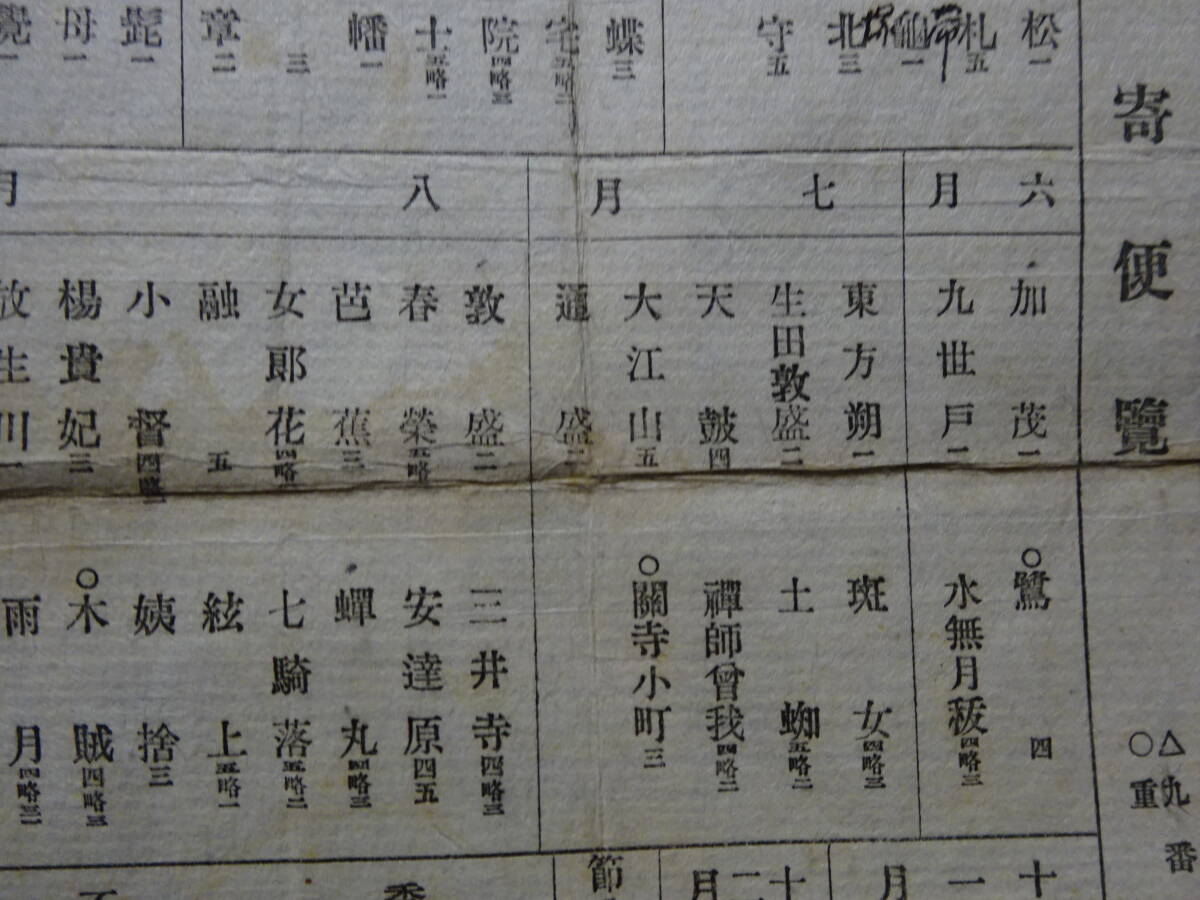 寄便覽
△九番
○重
松一
札五
龜一
北三
守五
蝶三
宅五略二
院四略三
士五略一
幡一
三
章二
髭一
母一
覺一
六月
加茂一
九世戸一
○鷺四
水無月祓四略三
七月
東方朔一
生田敦盛二
天鼓四
大江山五
通盛二
斑女四略三
土蜘五略二
禪師曾我四略二
○關寺小町三
八月
敦盛二
春榮五略
芭蕉三
女郎花四略
融五
小督四略二
楊貴妃三
放生川一
三井寺四略三
安達原四五
蟬丸四略三
七騎落五略二
絃上五略一
姨捨三
○木賊四略三
雨月四略三
十一月
十二月
節